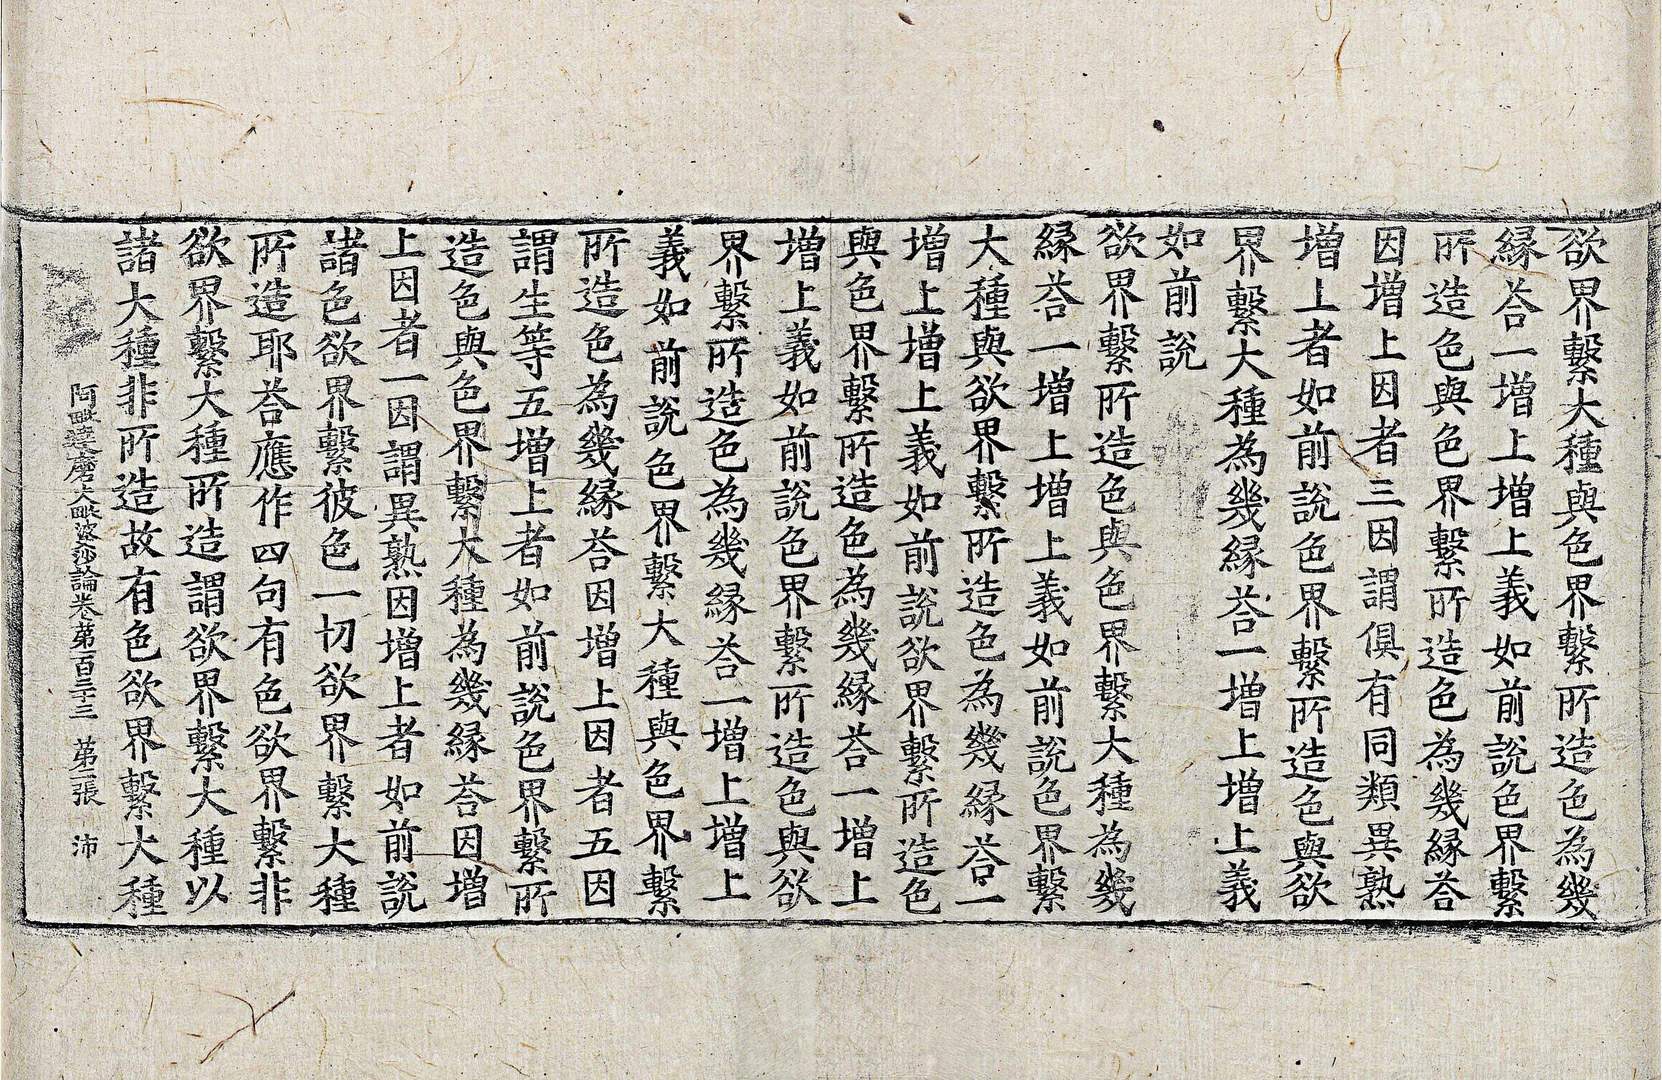 欲界繫大種與色界繫所造色為幾
緣荅一增上增上義如前說色界繫
所造色與色界繫所造色為幾緣荅
因增上因者三因謂俱有同類異熟
增上者如前說色界繫所造色與欲
界繫大種為幾緣荅一增上增上義
如前說
欲界繫所造色與色界繫大種為幾
緣荅一增上增上義如前說色界繫
大種與欲界繫所造色為幾緣荅一
增上增上義如前說欲界繫所造色
與色界繫所造色為幾緣荅一增上
增上義如前說色界繫所造色與欲
界繫所造色為幾緣荅一增上增上
義如前說色界繫大種與色界繫
所造色為幾緣荅因增上因者五因
謂生等五增上者如前說色界繫所
造色與色界繫大種為幾緣荅因增
上因者一因謂異熟因增上者如前說
諸色欲界繫彼色一切欲界繫大種
所造耶荅應作四句有色欲界繫非
欲界繫大種所造謂欲界繫大種以
諸大種非所造故有色欲界繫大種
阿毗達磨大毗婆沙論卷第一百三十三 第二張 沛